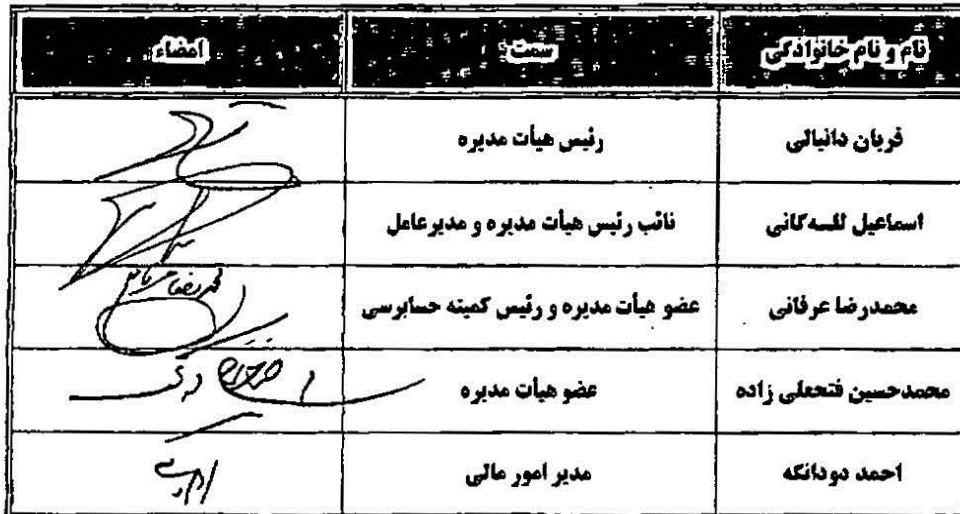 نام و نام خانوادگی سمت امضاء
قربان دانیالی رئیس هیأت مدیره
اسماعیل للـه‌گانی نائب رئیس هیأت مدیره و مدیرعامل
محمدرضا عرفانی عضو هیأت مدیره و رئیس کمیته حسابرسی
محمدحسین فتحعلی زاده عضو هیأت مدیره
احمد دودانگه مدیر امور مالی